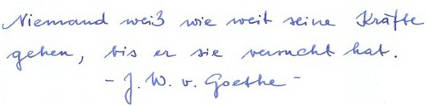 Niemand weiß wie weit seine Kräfte
gehen, bis er sie versucht hat.
- J. W. v. Goethe -